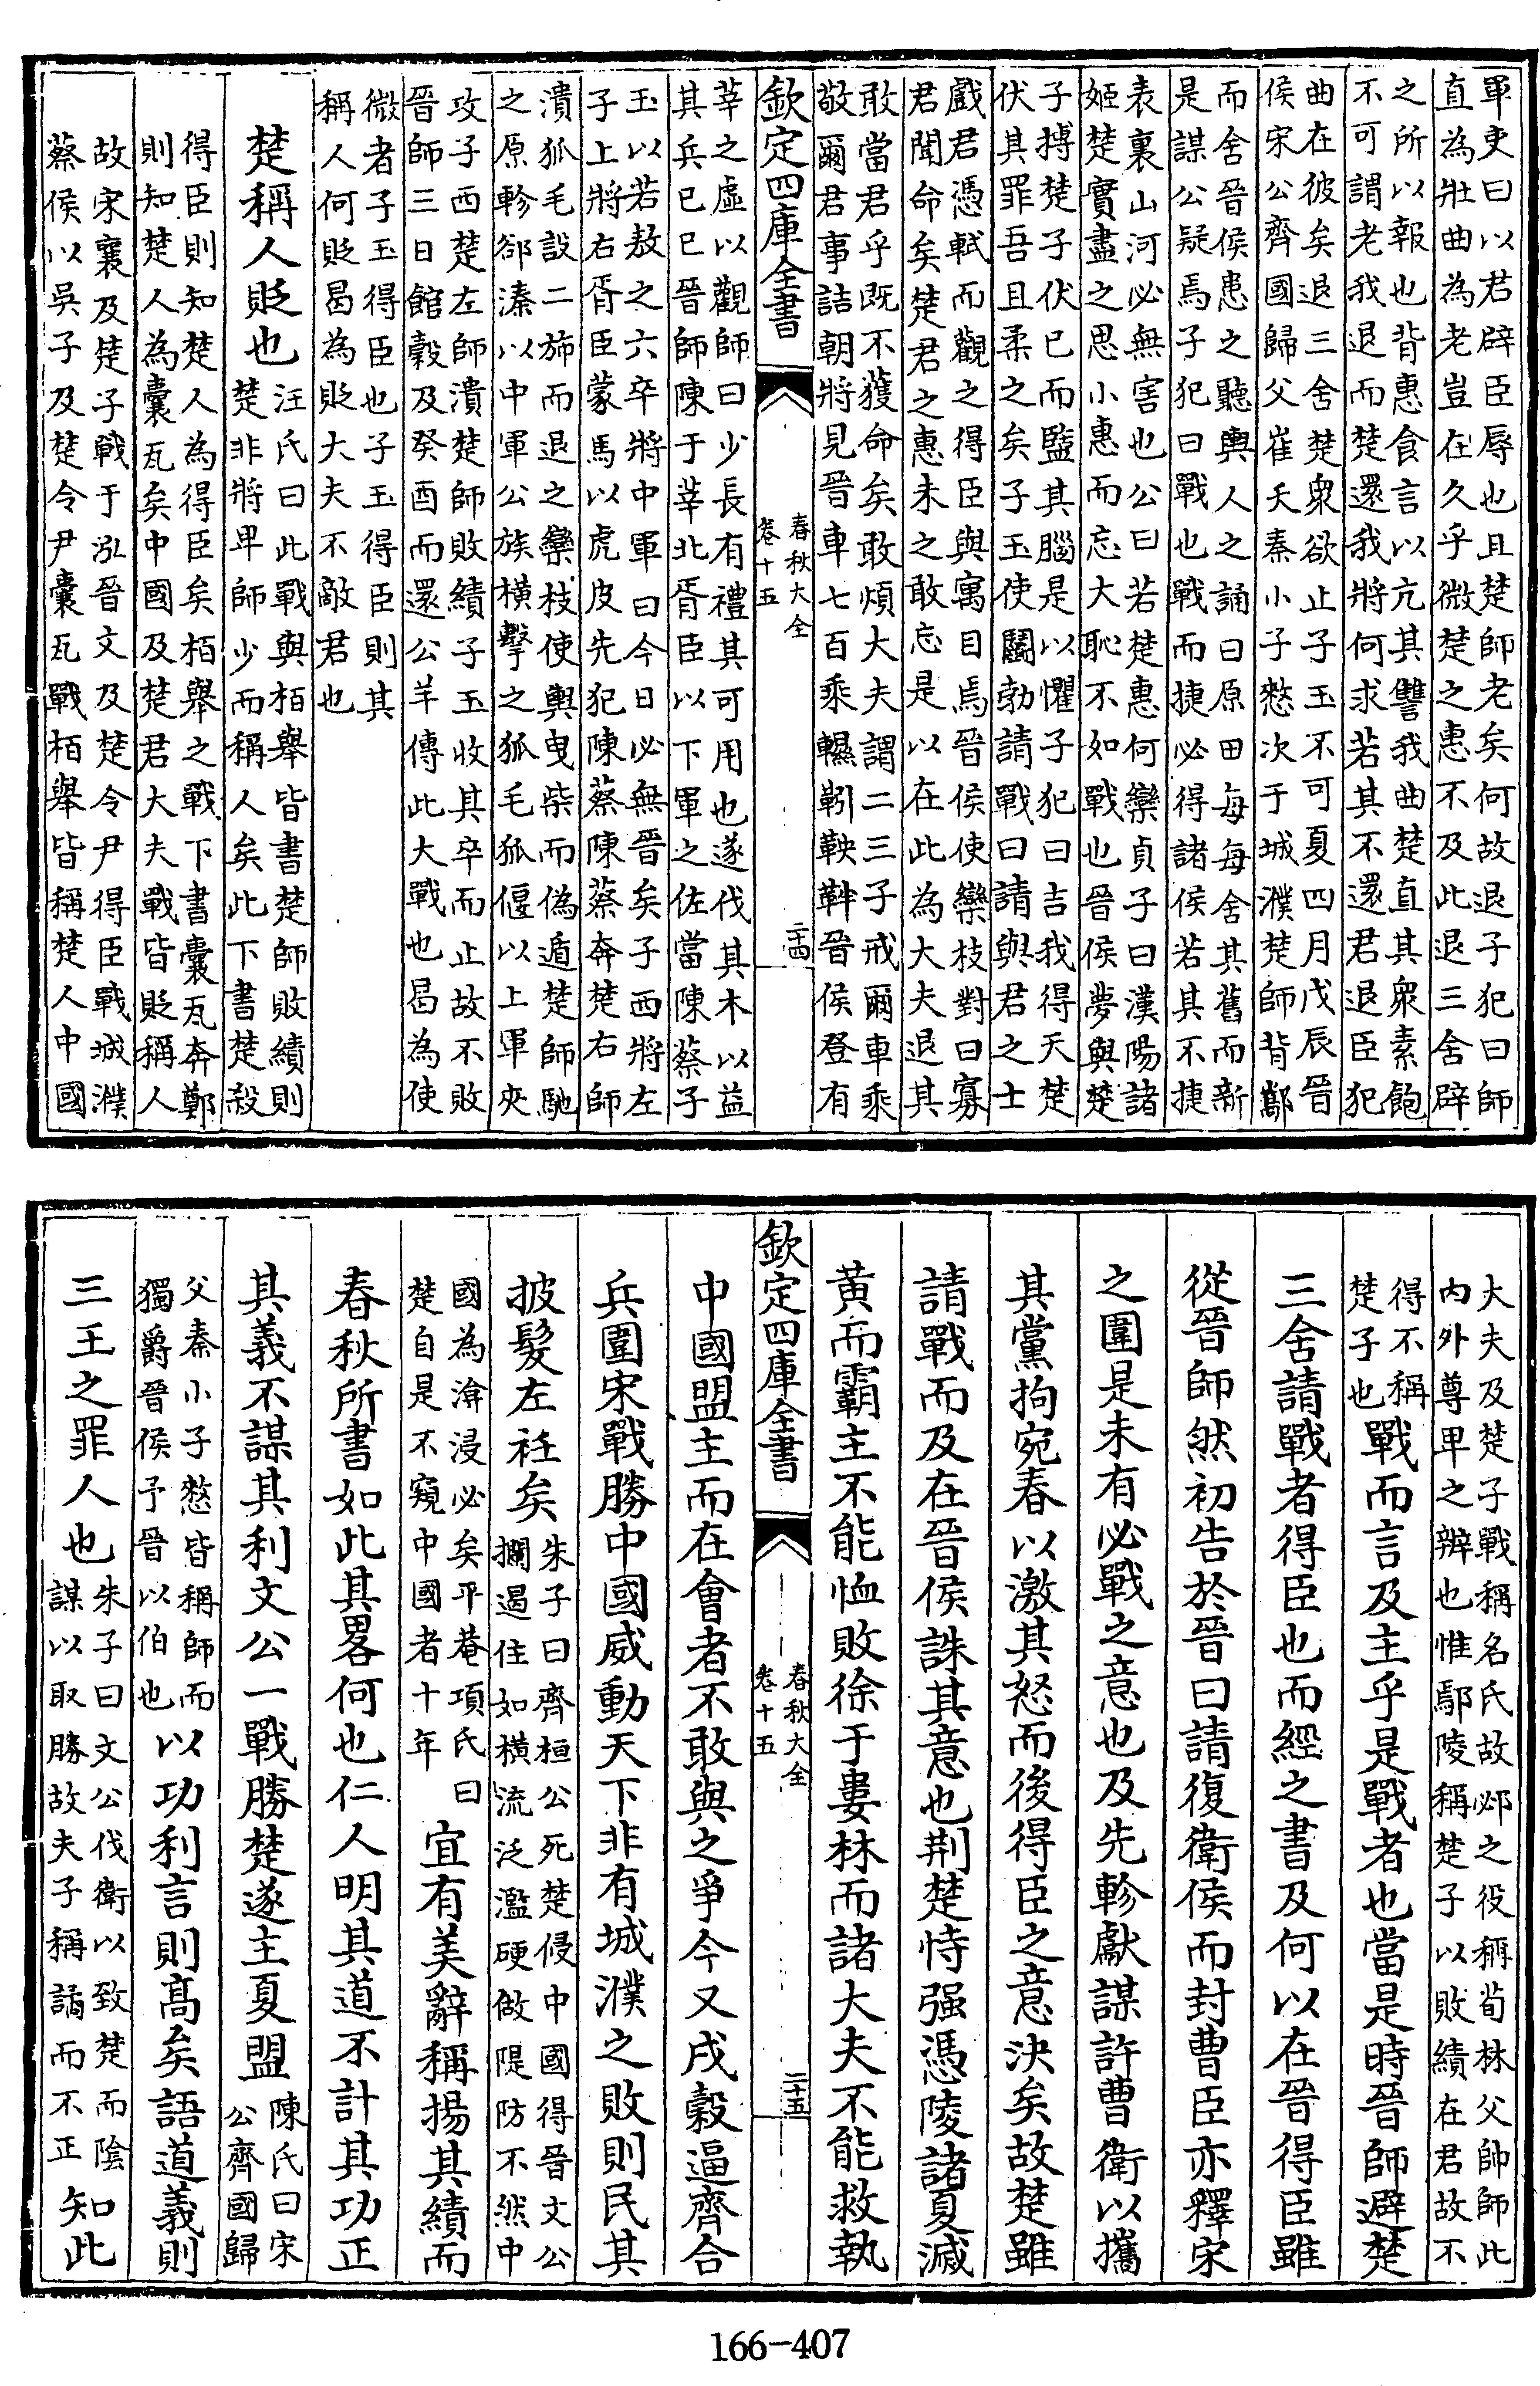 軍吏曰以君辟臣辱也且楚師老矣何故退子犯曰師
直為壯曲為老豈在久乎微楚之惠不及此退三舍辟
之所以報也背惠食言以亢其讐我曲楚直其衆素飽
不可謂老我退而楚還我將何求若其不還君退臣犯
曲在彼矣退三舍楚衆欲止子玉不可夏四月戊辰晉
侯宋公齊國歸父崔夭秦小子憖次于城濮楚師背酅
而舍晉侯患之聽輿人之誦曰原田每每舍其舊而新
是謀公疑焉子犯曰戰也戰而捷必得諸侯若其不捷
表裏山河必無害也公曰若楚惠何欒貞子曰漢陽諸
姬楚實盡之思小惠而忘大恥不如戰也晉侯夢與楚
子搏楚子伏已而盬其腦是以懼子犯曰吉我得天楚
伏其罪吾且柔之矣子玉使鬭勃請戰曰請與君之士
戲君憑軾而觀之得臣與寓目焉晉侯使欒枝對曰寡
君聞命矣楚君之惠未之敢忘是以在此為大夫退其
敢當君乎既不獲命矣敢煩大夫謂二三子戒爾車乘
敬爾君事詰朝將見晉車七百乘韅靷鞅靽晉侯登有
欽定四庫全書
春秋大全
卷十五
二十四
莘之虛以觀師曰少長有禮其可用也遂伐其木以益
其兵已巳晉師陳于莘北胥臣以下軍之佐當陳蔡子
玉以若敖之六卒將中軍曰今日必無晉矣子西將左
子上將右胥臣蒙馬以虎皮先犯陳蔡陳蔡奔楚右師
潰狐毛設二斾而退之欒枝使輿曳柴而偽遁楚師馳
之原軫郤溱以中軍公族横擊之狐毛狐偃以上軍夾
攻子西楚左師潰楚師敗績子玉收其卒而止故不敗
晉師三日館穀及癸酉而還公羊傳此大戰也曷為使
微者子玉得臣也子玉得臣則其
稱人何貶曷為貶大夫不敵君也
楚稱人貶也
汪氏曰此戰與栢舉皆書楚師敗績則
楚非將卑師少而稱人矣此下書楚殺
得臣則知楚人為得臣矣栢舉之戰下書囊瓦奔鄭
則知楚人為囊瓦矣中國及楚君大夫戰皆貶稱人
故宋襄及楚子戰于泓晉文及楚令尹得臣戰城濮
蔡侯以吳子及楚令尹囊瓦戰栢舉皆稱楚人中國
大夫及楚子戰稱名氏故邲之役稱荀林父帥師此
内外尊卑之辨也惟鄢陵稱楚子以敗績在君故不
得不稱
楚子也
戰而言及主乎是戰者也當是時晉師避楚
三舍請戰者得臣也而經之書及何以在晉得臣雖
從晉師然初告於晉曰請復衛侯而封曹臣亦釋宋
之圍是未有必戰之意也及先軫獻謀許曹衛以攜
其黨拘宛春以激其怒而後得臣之意決矣故楚雖
請戰而及在晉侯誅其意也荆楚恃强憑陵諸夏滅
黄而霸主不能恤敗徐于婁林而諸大夫不能救執
欽定四庫全書
春秋大全
卷十五
二十五
中國盟主而在會者不敢與之爭今又戍穀逼齊合
兵圍宋戰勝中國威動天下非有城濮之敗則民其
披髮左衽矣
朱子曰齊桓公死楚侵中國得晉文公
攔遏住如横流泛濫硬做隄防不然中
國為渰浸必矣平菴項氏曰
楚自是不窺中國者十年
宜有美辭稱揚其績而
春秋所書如此其畧何也仁人明其道不計其功正
其義不謀其利文公一戰勝楚遂主夏盟
陳氏曰宋
公齊國歸
父秦小子憖皆稱師而
獨爵晉侯予晉以伯也
以功利言則髙矣語道義則
三王之罪人也
朱子曰文公伐衛以致楚而陰
謀以取勝故夫子稱譎而不正
知此
166-407